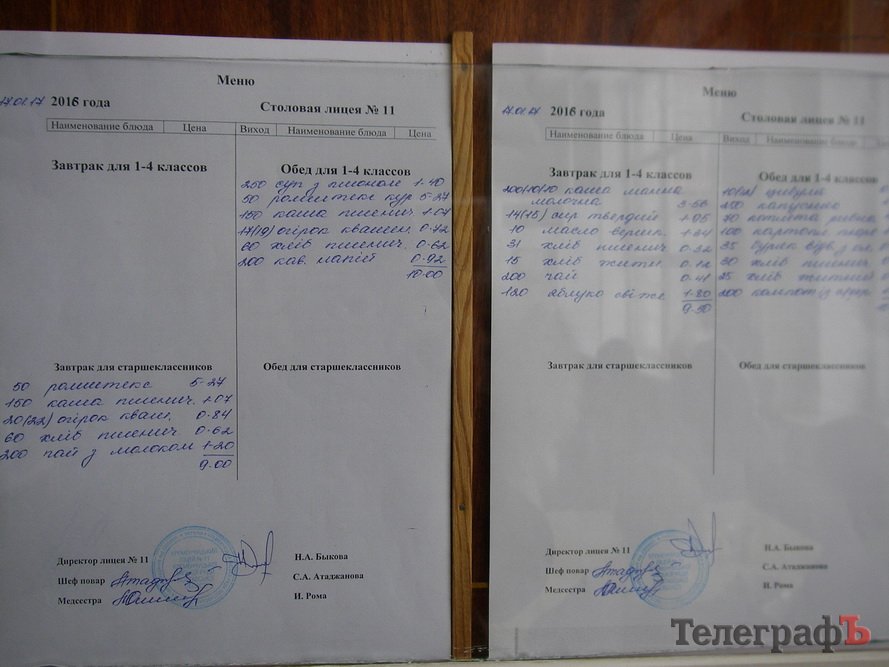 Меню
17.01.17 2016 года
Столовая лицея № 11
Наименование блюда Цена Виход Наименование блюда Цена
Завтрак для 1-4 классов
Обед для 1-4 классов
250 суп з пшоном 1-40
50 ромштекс кур 5-27
150 каша пшенич 1-07
17(19) огірок квашен. 0-72
60 хліб пшенич. 0-62
200 кав. напій 0-92
10.00
Завтрак для старшеклассников
Обед для старшеклассников
50 ромштекс 5-27
150 каша пшенич. 1-07
20(22) огірок кваш. 0-84
60 хліб пшенич 0-62
200 чай з молоком 1-20
9.00
Директор лицея № 11 Н.А. Быкова
Шеф повар С.А. Атаджанова
Медсестра И. Рома
Меню
17.01.17 2016 года
Столовая лицея № 11
Наименование блюда Цена Виход Наименование блюда
Завтрак для 1-4 классов
Обед для 1-4 классов
200/10/10 каша манна
молочна 3-56
14(15) сир твердий 1-05
10 масло вершк. 1-64
31 хліб пшенич 0-32
15 хліб житн. 0-12
200 чай 0-41
120 яблуко свіже 1-80
9-50
10(12) цибуля
250 капусняк
70 котлета рибна
100 картопл. пюре
35 буряк відв. з ол.
30 хліб пшенич.
25 хліб житній
200 компот з
Завтрак для старшеклассников
Обед для старшеклассников
Директор лицея № 11 Н.А. Быкова
Шеф повар С.А. Атаджанова
Медсестра И. Рома
ТелеграфЪ